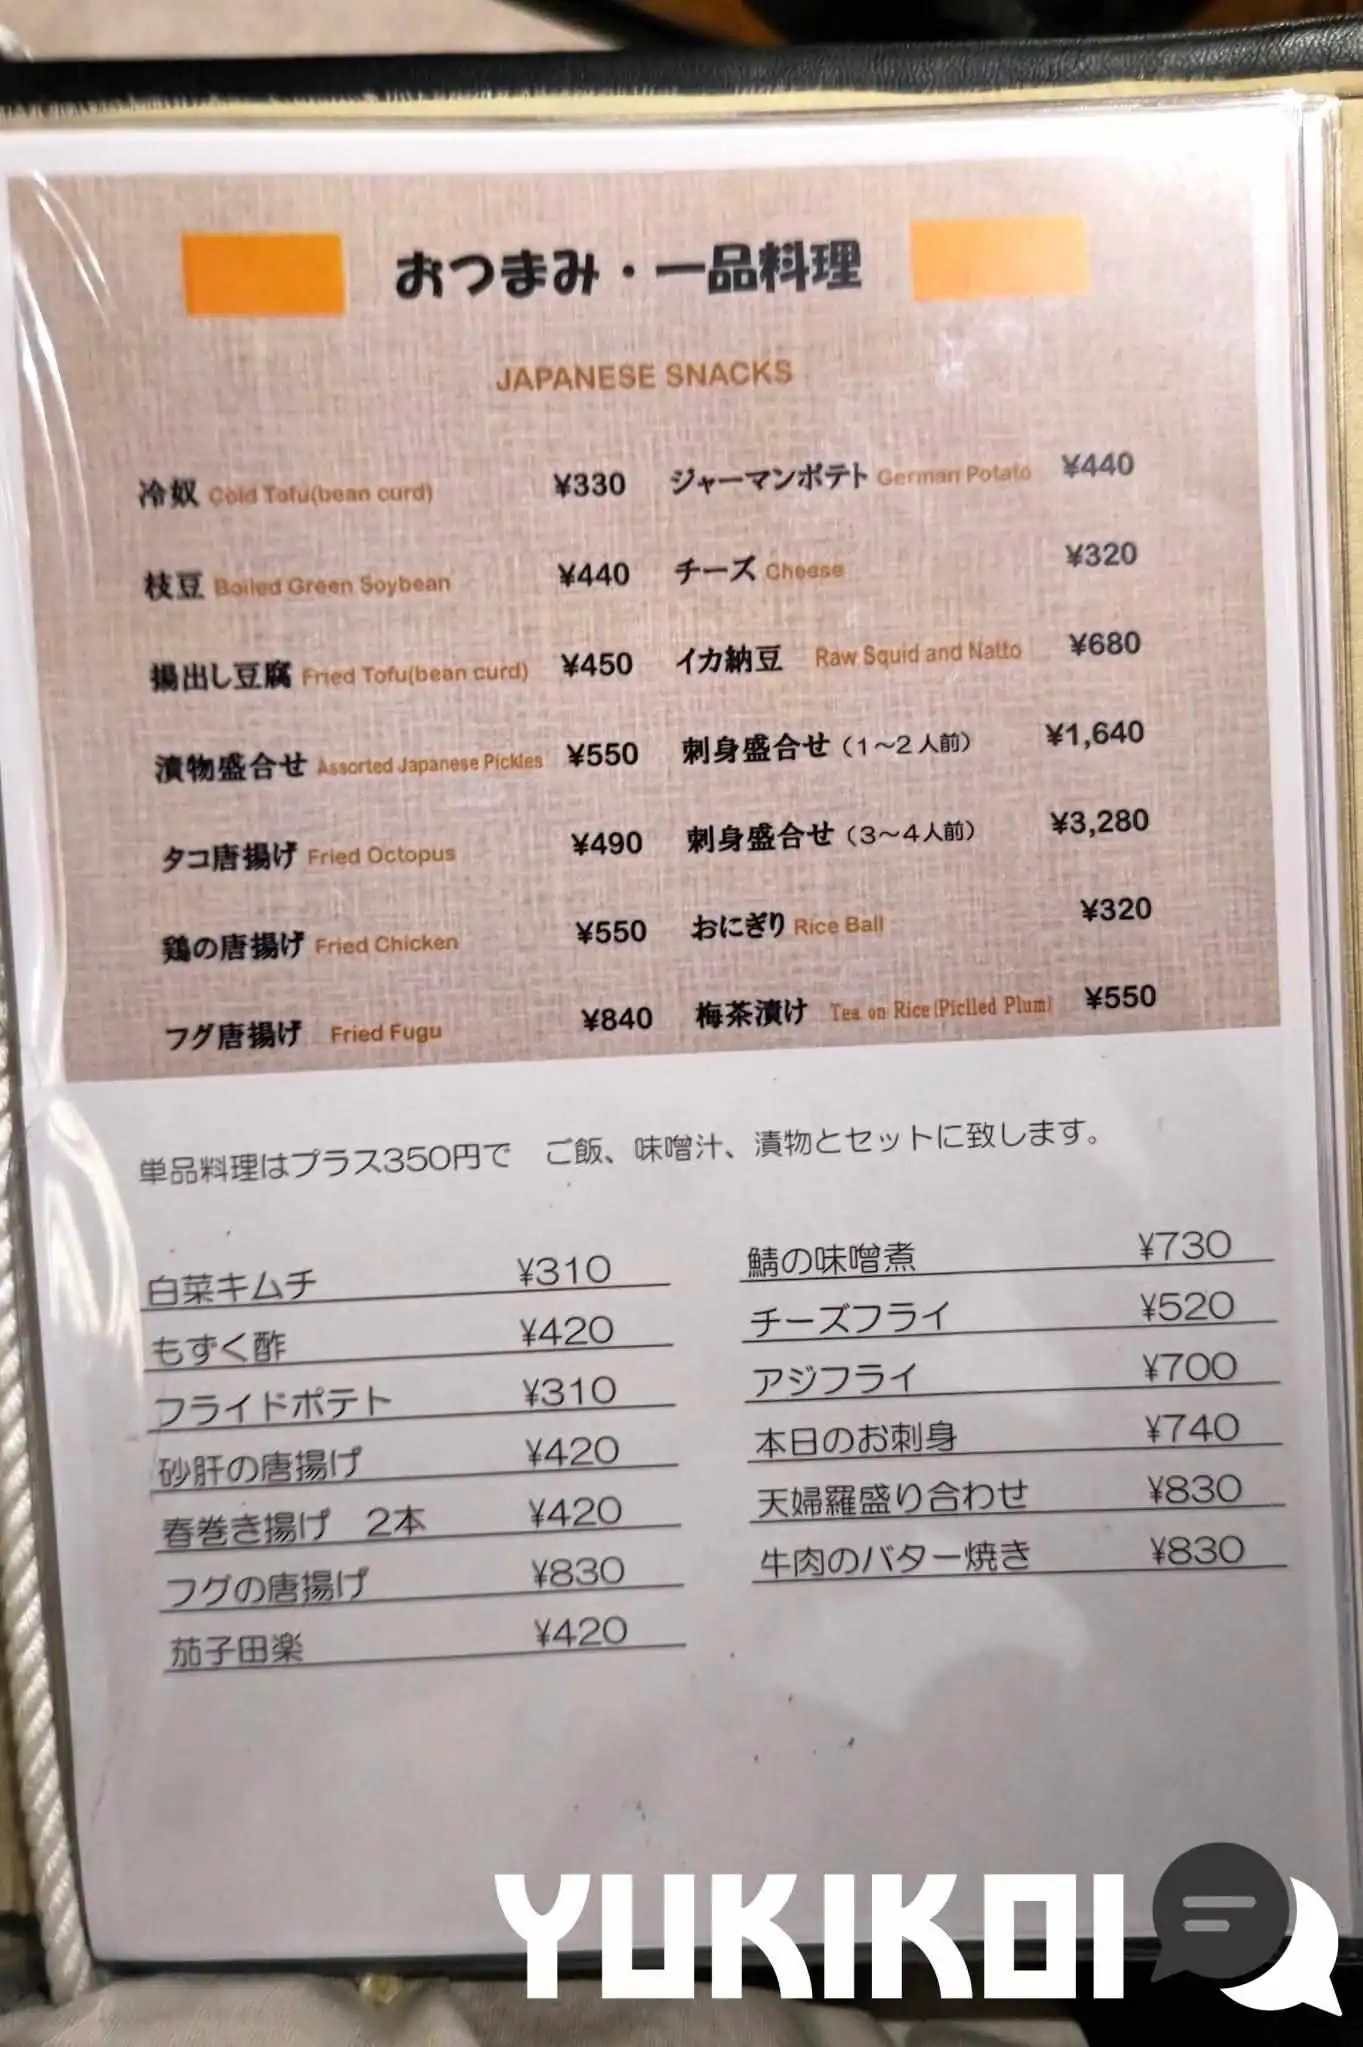 おつまみ・一品料理
JAPANESE SNACKS
冷奴 Cold Tofu(bean curd) ¥330 ジャーマンポテト German Potato ¥440
枝豆 Boiled Green Soybean ¥440 チーズ Cheese ¥320
揚出し豆腐 Fried Tofu(bean curd) ¥450 イカ納豆 Raw Squid and Natto ¥680
漬物盛合せ Assorted Japanese Pickles ¥550 刺身盛合せ（1～2人前） ¥1,640
タコ唐揚げ Fried Octopus ¥490 刺身盛合せ（3～4人前） ¥3,280
鶏の唐揚げ Fried Chicken ¥550 おにぎり Rice Ball ¥320
フグ唐揚げ Fried Fugu ¥840 梅茶漬け Tea on Rice(Piclled Plum) ¥550
単品料理はプラス350円で ご飯、味噌汁、漬物とセットに致します。
白菜キムチ ¥310 鯖の味噌煮 ¥730
もずく酢 ¥420 チーズフライ ¥520
フライドポテト ¥310 アジフライ ¥700
砂肝の唐揚げ ¥420 本日のお刺身 ¥740
春巻き揚げ 2本 ¥420 天婦羅盛り合わせ ¥830
フグの唐揚げ ¥830 牛肉のバター焼き ¥830
茄子田楽 ¥420
YUKIKOI